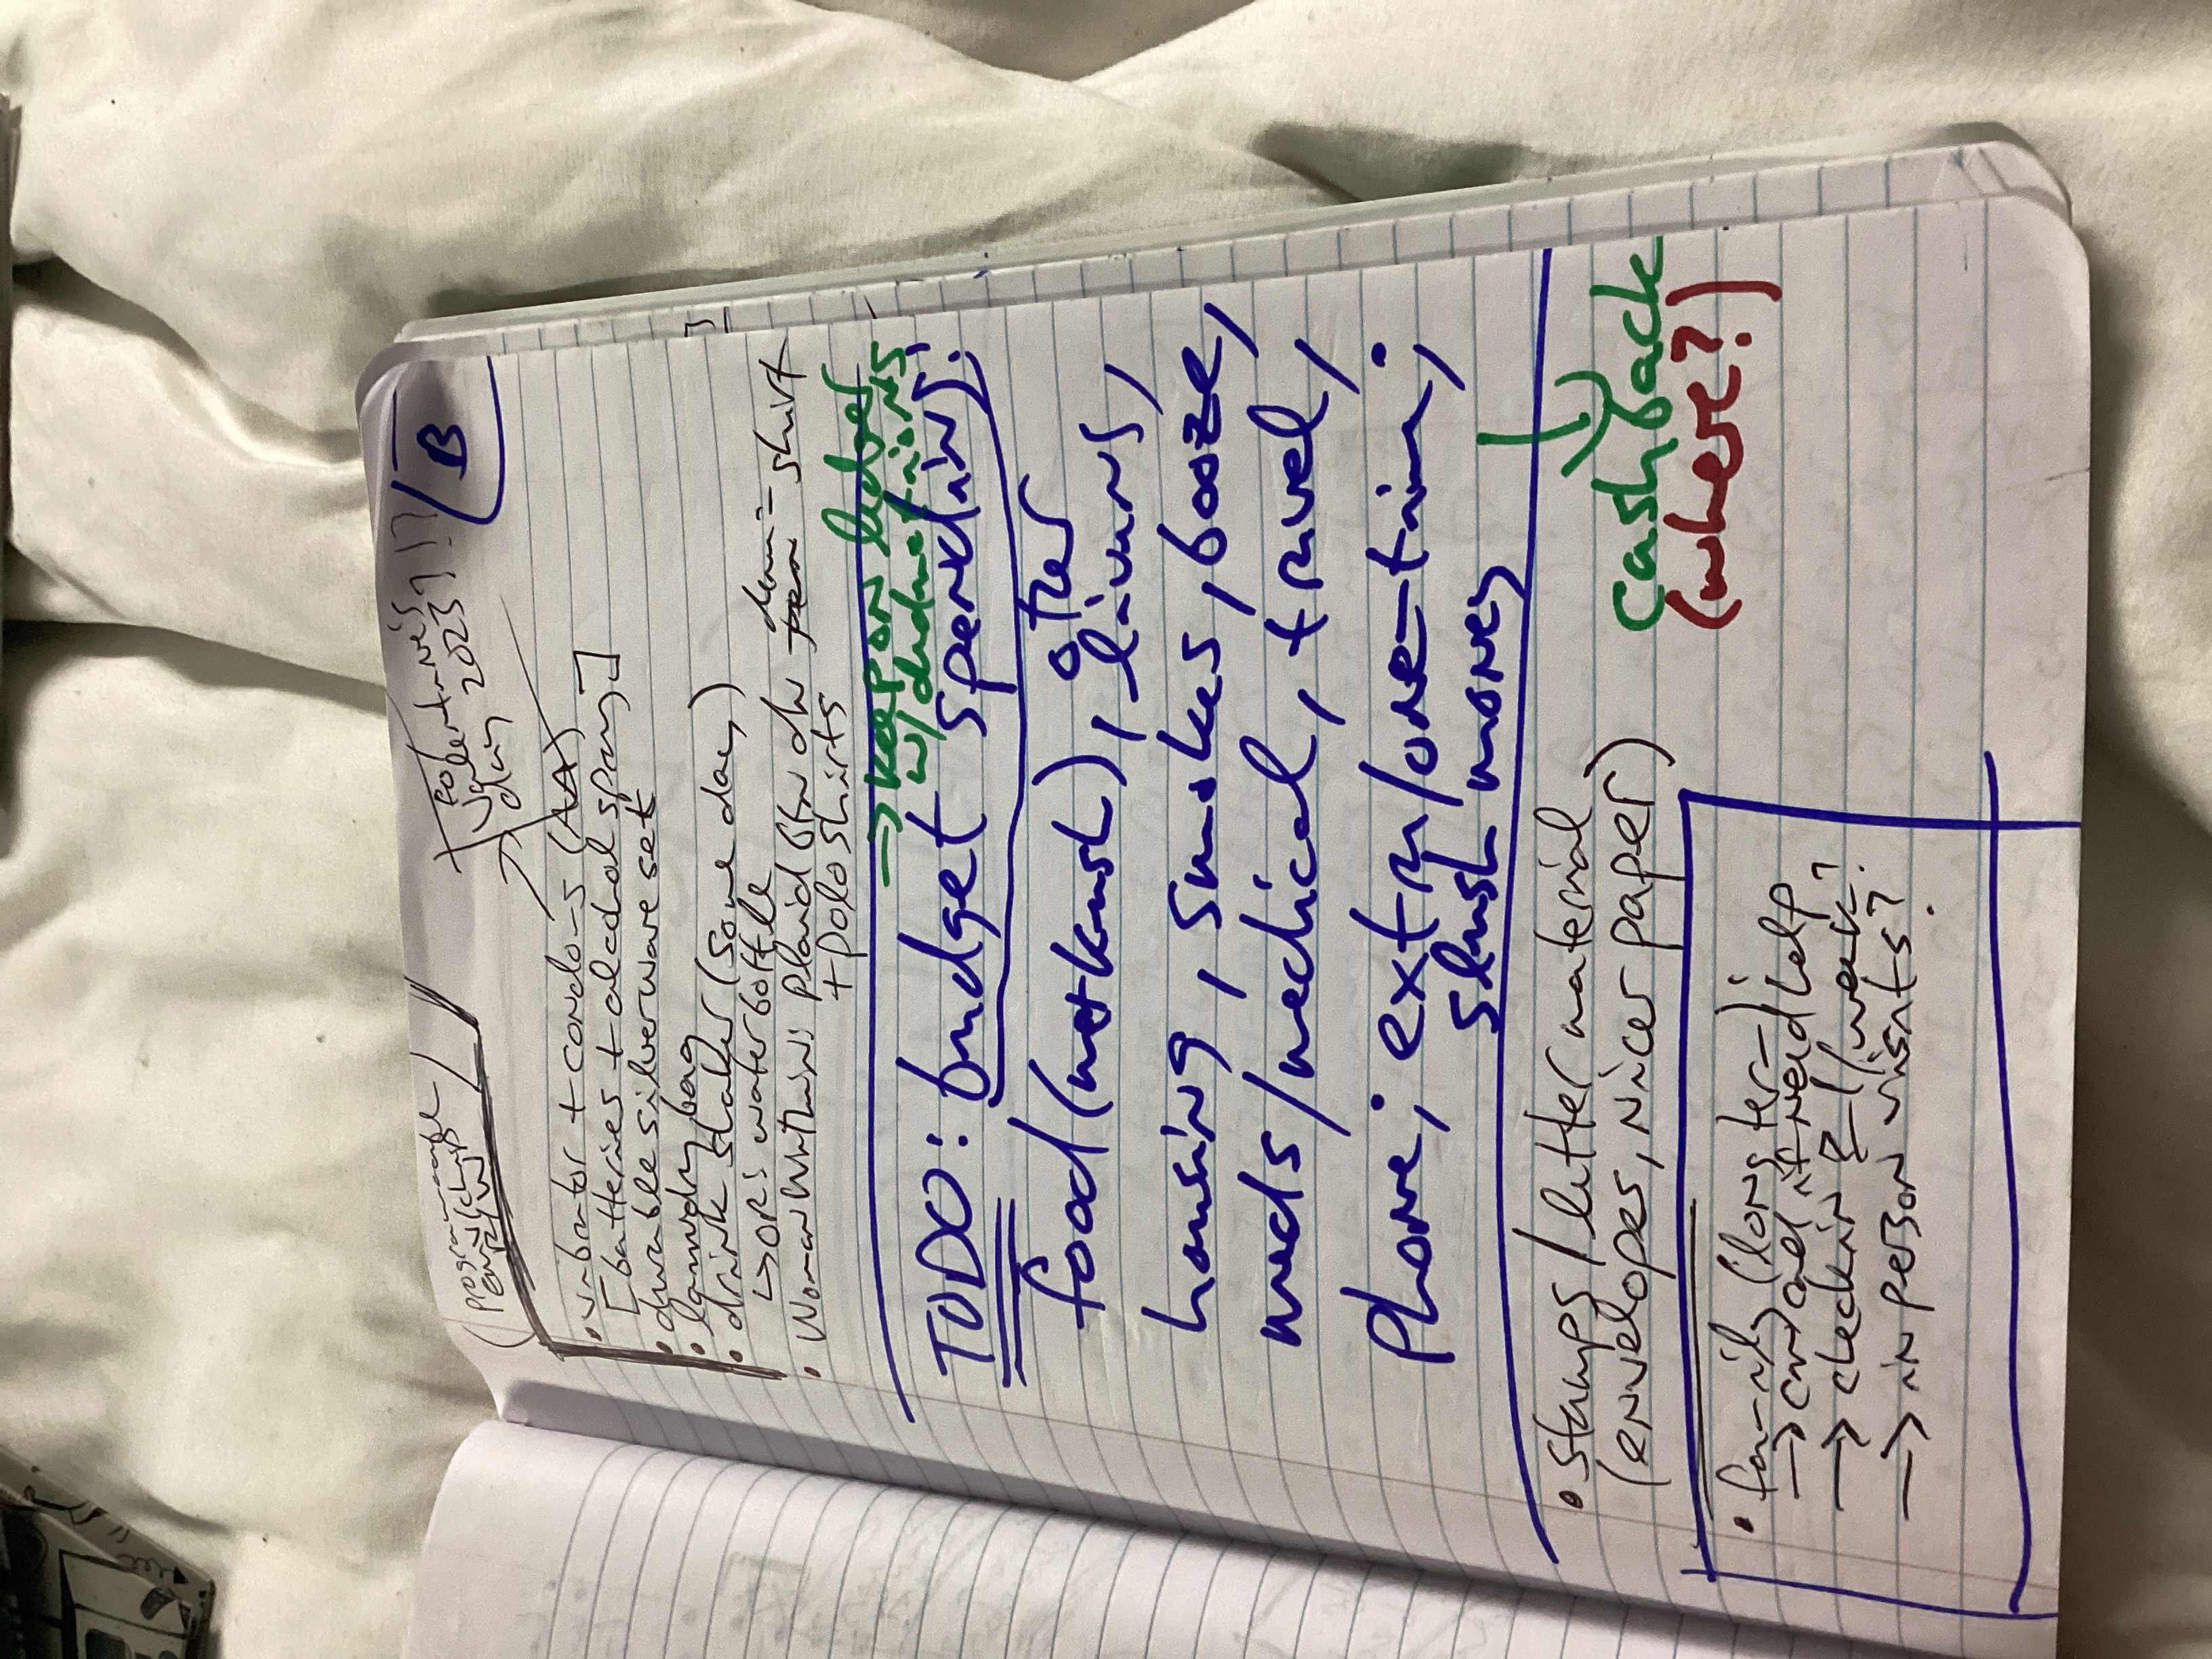 B
programmable
R/W
for
Valentine's
day 2023?!?
• vibrator + condoms (AA)
[batteries + alcohol spray]
• durable silverware set
• laundry bag
• drink shaker (some day)
↳ OR: water bottle
• Woman Within: plaid btn dn shirt
+ polo shirts
→ keep on ledger
w/ deductions
TODO: budget spending:
food (not kush), other
living,
housing, smokes, booze,
meds/medical, travel,
phone; extra/one-time;
slush money
• stamps/letter material
(envelopes, nicer paper)
cashback
(where?)
• family (long term):
→ can call if need help
→ check in ≥1/week?
→ in person visits?